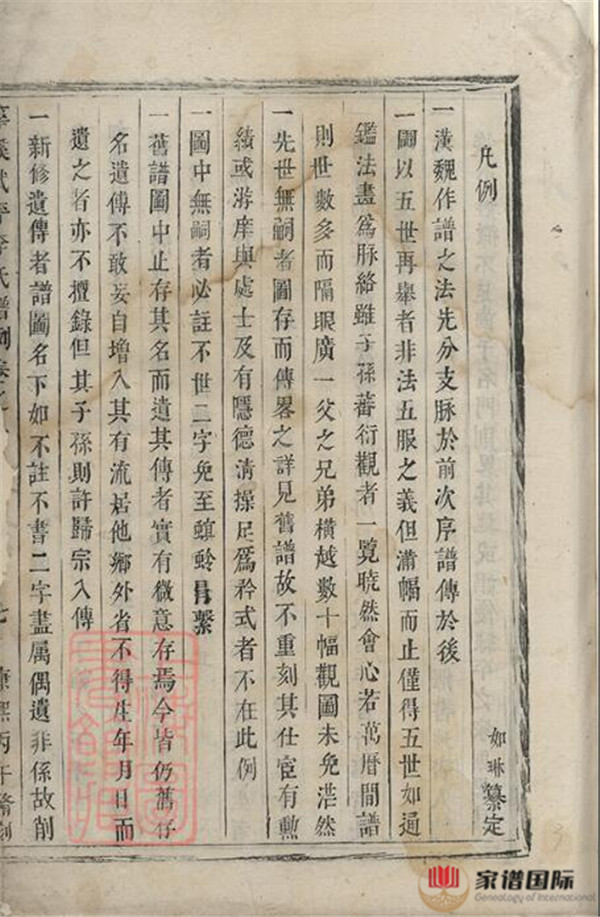 凡例
如琳纂定
一漢魏作譜之法先分支脉於前次序譜傳於後
一圖以五世再舉者非法五服之義但滿幅而止僅得五世如通
鑑法盡爲脉絡雖子孫蕃衍觀者一覽曉然會心若萬曆間譜
則世數多而隔眼廣一父之兄弟橫越數十幅觀圖未免茫然
一先世無嗣者圖存而傳畧之詳見舊譜故不重刻其仕宦有勲
績或游庠與處士及有隱德清操足爲矜式者不在此例
一圖中無嗣者必註不世二字免至螟蛉冐繫
一舊譜圖中止存其名而遺其傳者實有微意存焉今皆仍舊存
名遺傳不敢妄自增入其有流居他鄉外省不得生年月日而
遺之者亦不擅錄但其子孫則許歸宗入傳
一新修遺傳者譜圖名下如不註不書二字盡屬偶遺非係故削
氏譜
康熙丙午脩刻
家谱国际
Genealogy of International